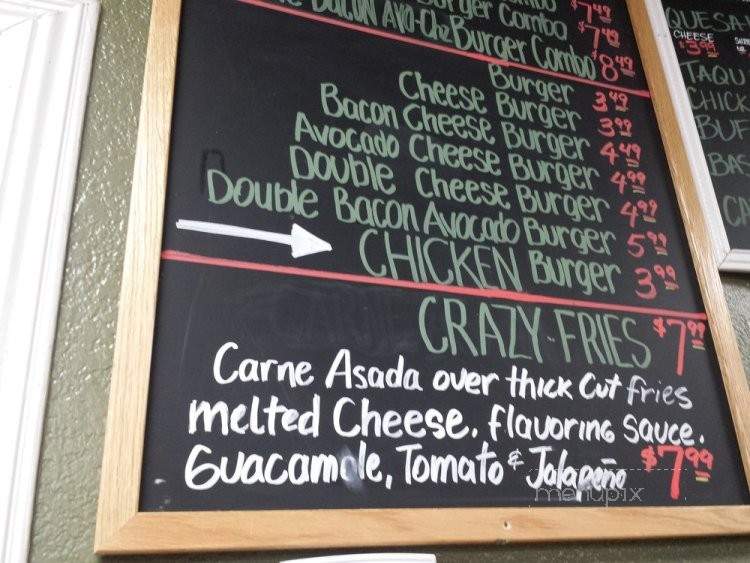 Burger Combo $749
Bacon Avo-Chz Burger Combo $749
$849
Burger 349
Cheese Burger 399
Bacon Cheese Burger 449
Avocado Cheese Burger 499
Double Cheese Burger 499
Double Bacon Avocado Burger 599
CHICKEN Burger 399
CRAZY-FRIES $799
Carne Asada over thick Cut fries
melted Cheese. flavoring sauce.
Guacamole, Tomato & Jalapeño $799
menupix
QUESA
CHEESE
$399
TAQU
CHICK
BUF
BAS